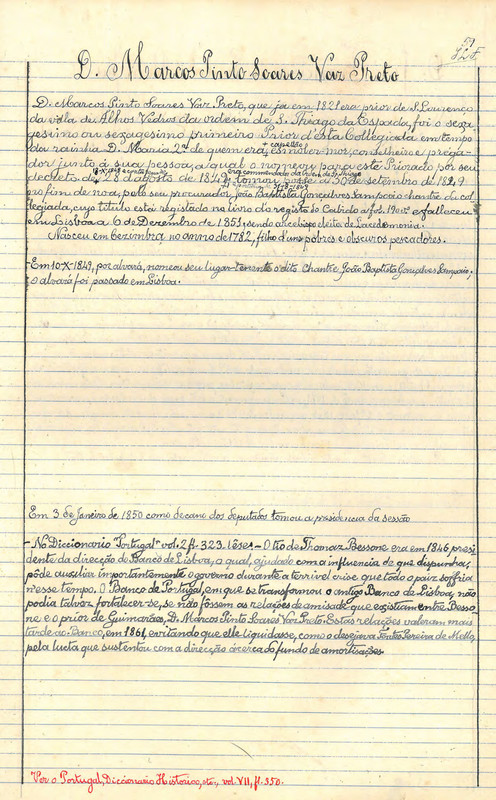 51
D. Marcos Pinto Soares Vaz Preto
D. Marcos Pinto Soares Vaz Preto, que ja em 1821 era prior de S. Lourenço
da villa de Alhos Vedros da ordem de S. Thiago da Espada, foi o sexa-
gesimo ou sexagesimo primeiro Prior d'esta Collegiada em tempo
+ capellão
da rainha D. Maria 2ª de quem era, esmoler-mor, conselheiro e préga-
dor junto á sua pessoa, a qual o nomeou para este Priorado por seu
era commendador da ordem de S. Thiago
decreto de 28 d'agosto de 1849, tomou posse a 30 de setembro de 1849
no fim de noa, pelo seu procurador, João Baptista Gonçalves Sampaio chantre da col-
legiada, cujo titulo está registado no livro do registo do Cabido a fol. 190 vº. Falleceu
em Lisboa a 6 de Dezembro de 1851, sendo arcebispo eleito de Lacedemonia.
Nasceu em Cezimbra no anno de 1782, filho d'uns pobres e obscuros pescadores.
- Em 10-X-1849, por alvará, nomeou seu lugar-tenente o dito chantre João Baptista Gonçalves Sampaio;
o alvará foi passado em Lisboa.
Em 3 de Janeiro de 1850 como decano dos deputados tomou a presidencia da sessão
- No Diccionario "Portugal" vol. 2 fl. 323 lê-se - O tio de Thomaz Bessone era em 1846 presi-
dente da direcção do Banco de Lisboa, o qual, ajudado com a influencia de que dispunha,
pôde auxiliar importantemente o governo durante a terrivel crise que todo o paiz soffria
n'esse tempo. O Banco de Portugal, em que se transformou o antigo Banco de Lisboa, não
podia talvez fortalecer-se, se não fôssem as relações de amisade que existiam entre Besso-
ne e o prior de Guimarães, D. Marcos Pinto Soares Vaz Preto. Estas relações valeram mais
tarde ao Banco, em 1861, evitando que elle liquidasse, como o desejava Fontes Pereira de Mello,
pela lucta que sustentou com a direcção ácerca do fundo de amortisações.
Ver o Portugal, Diccionario Historico, etc., vol. VII, fl. 350.